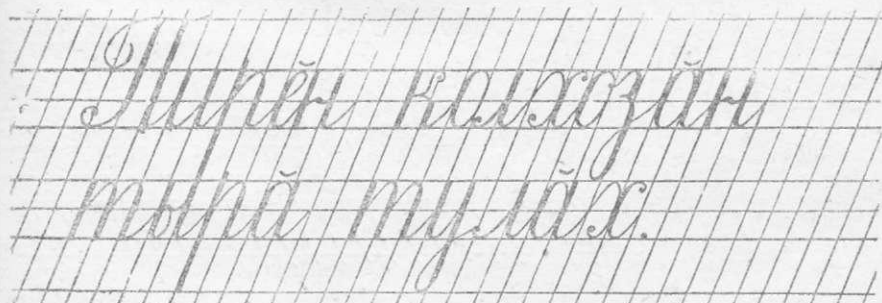 Пирӗн колхозӑн
тырӑ тулӑх.